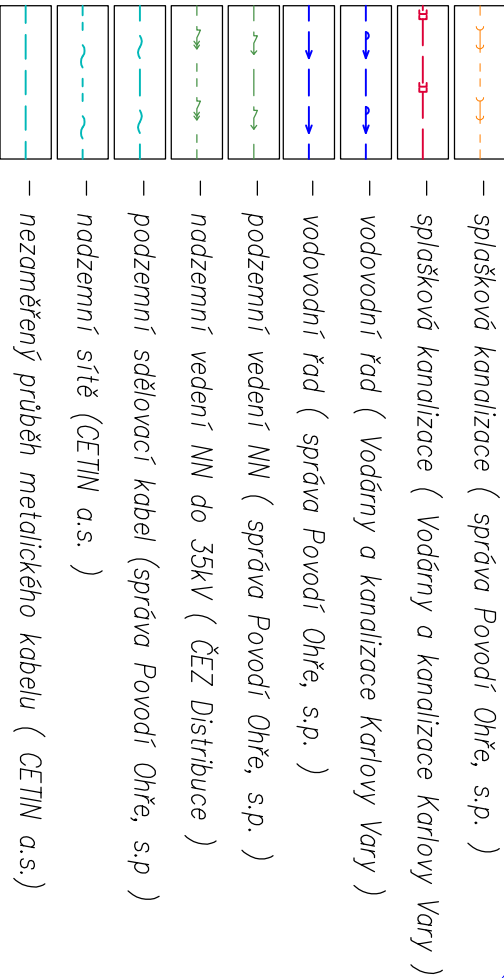 – splašková kanalizace ( správa Povodí Ohře, s.p. )
– splašková kanalizace ( Vodárny a kanalizace Karlovy Vary )
– vodovodní řad ( Vodárny a kanalizace Karlovy Vary )
– vodovodní řad ( správa Povodí Ohře, s.p. )
– podzemní vedení NN ( správa Povodí Ohře, s.p. )
– nadzemní vedení NN do 35kV ( ČEZ Distribuce )
– podzemní sdělovací kabel (správa Povodí Ohře, s.p )
– nadzemní sítě (CETIN a.s. )
– nezaměřený průběh metalického kabelu ( CETIN a.s.)